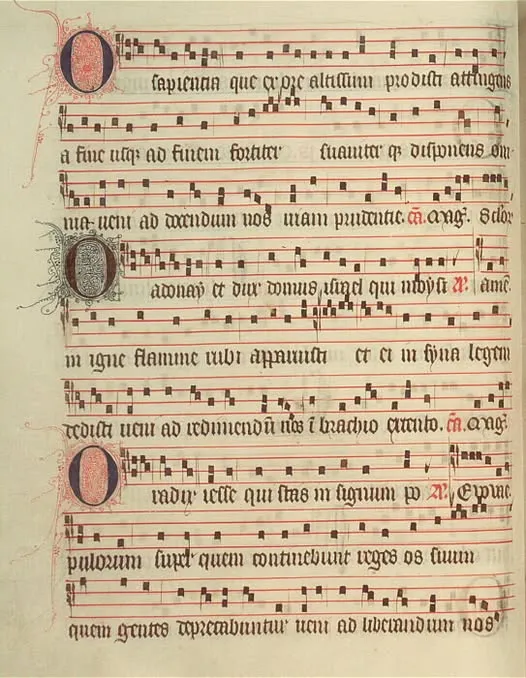 O sapientia que ex ore altissimi prodisti attingens
a fine usq; ad finem fortiter suauiter q; disponens om
nia ueni ad docendum nos uiam prudentie. Mag̅.
O adonay et dux domus israel qui moysi amē.
in igne flamme rubi apparuisti et ei in syna legem
dedisti ueni ad redimendū nos ī brachio extento. Mag̅.
O radix iesse qui stas in signum po
pulorum super quem continebunt reges os suum
quem gentes deprecabuntur ueni ad liberandum nos